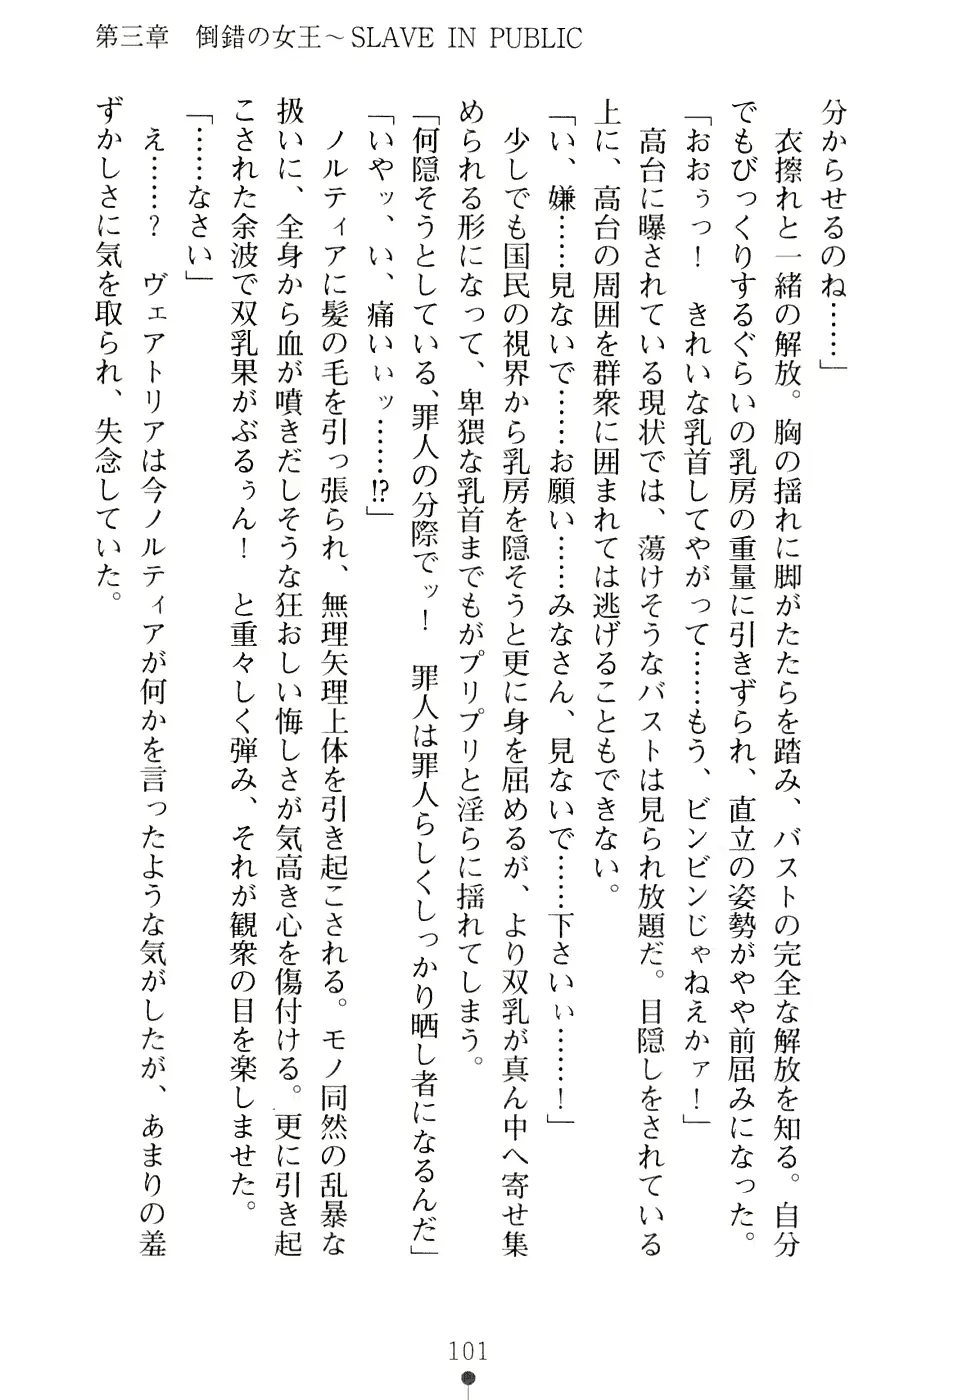 第三章　倒錯の女王～SLAVE IN PUBLIC
分からせるのね……」
　衣擦れと一緒の解放。胸の揺れに脚がたたらを踏み、バストの完全な解放を知る。自分
でもびっくりするぐらいの乳房の重量に引きずられ、直立の姿勢がやや前屈みになった。
「おおぅっ！　きれいな乳首してやがって……もう、ビンビンじゃねえかァ！」
　高台に曝されている現状では、蕩けそうなバストは見られ放題だ。目隠しをされている
上に、高台の周囲を群衆に囲まれては逃げることもできない。
「い、嫌……見ないで……お願い……みなさん、見ないで……下さいぃ……！」
　少しでも国民の視界から乳房を隠そうと更に身を屈めるが、より双乳が真ん中へ寄せ集
められる形になって、卑猥な乳首までもがプリプリと淫らに揺れてしまう。
「何隠そうとしている、罪人の分際でッ！　罪人は罪人らしくしっかり晒し者になるんだ」
「いやッ、い、痛いぃッ……!?」
　ノルティアに髪の毛を引っ張られ、無理矢理上体を引き起こされる。モノ同然の乱暴な
扱いに、全身から血が噴きだしそうな狂おしい悔しさが気高き心を傷付ける。更に引き起
こされた余波で双乳果がぶるぅん！　と重々しく弾み、それが観衆の目を楽しませた。
「……なさい」
　え……？　ヴェアトリアは今ノルティアが何かを言ったような気がしたが、あまりの羞
ずかしさに気を取られ、失念していた。
101